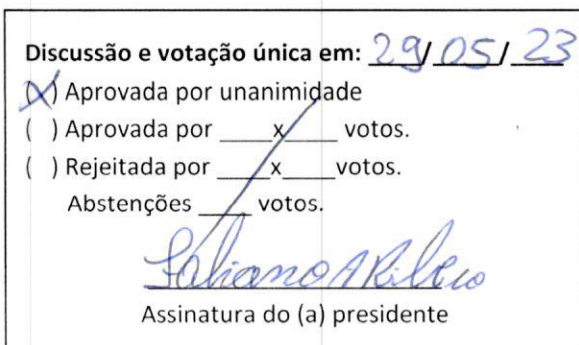 Discussão e votação única em: 29/05/23
(X) Aprovada por unanimidade
( ) Aprovada por ____x____ votos.
( ) Rejeitada por ____x____votos.
Abstenções ____ votos.
Fabiano A Ribeiro
Assinatura do (a) presidente